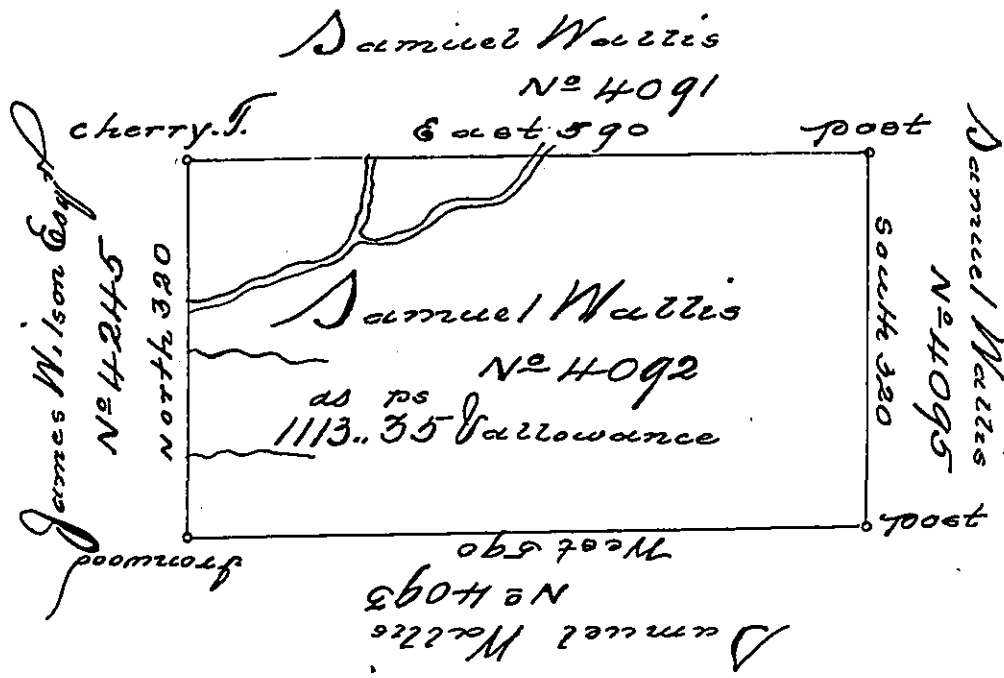 Samuel Wallis
Nº 4091
cherry.T.
East 590
post
James Wilson Esqr
Nº 4245
North 320
Samuel Wallis
Nº 4092
as ps
1113..35 & allowance
South 320
Nº 4095
Samuel Wallis
post
West 590
Ironwood
Nº 4093
Samuel Wallis